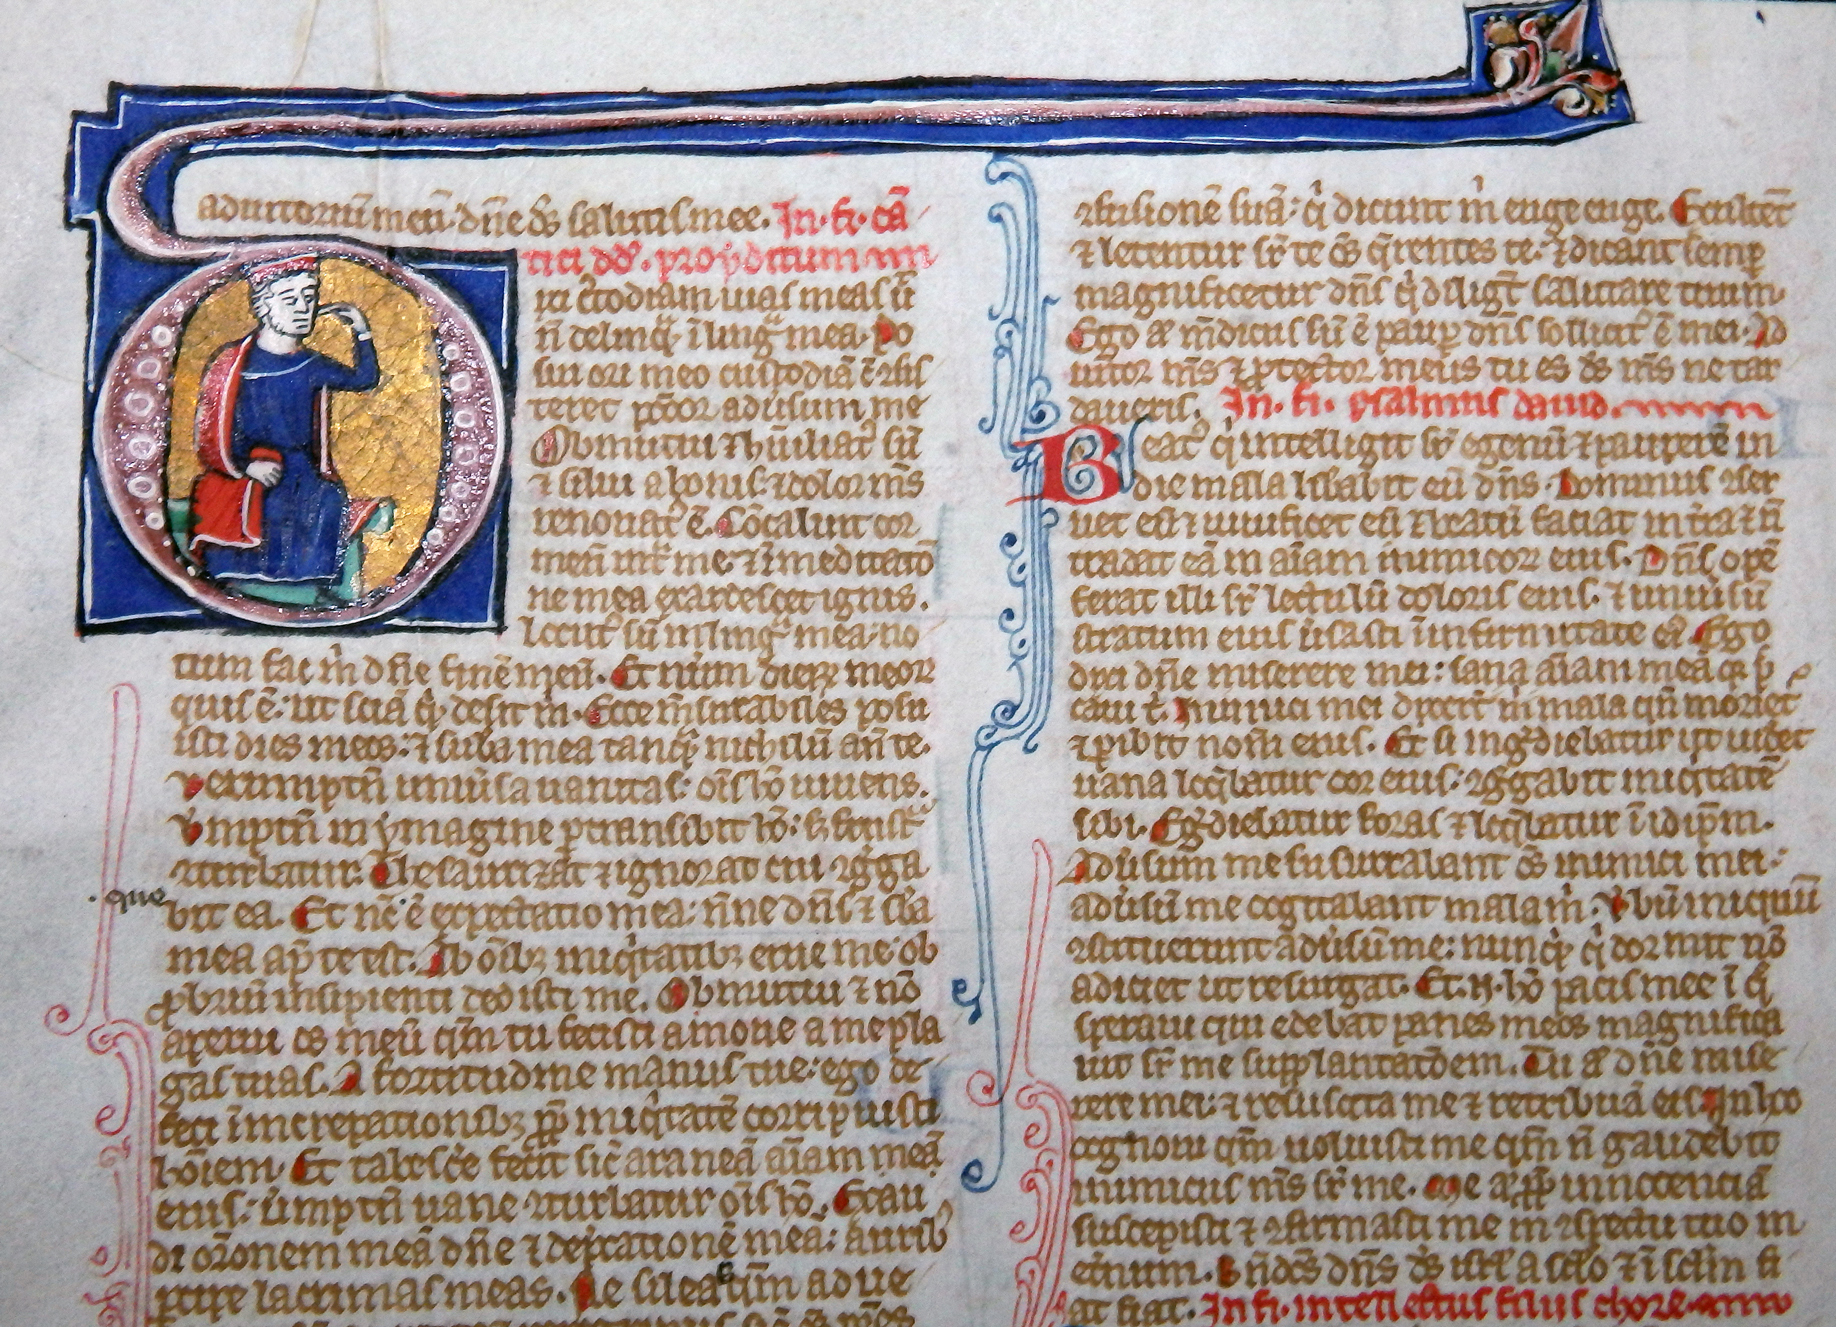 adiutorium meū dn̄e ds̄ salutis mee. In. fi. cā
tici dd̄.
xi c̄todiam uias meas ūt
n̄ delinq̄ ī lingᷓ mea. Po
sui ori meo custodiā c̄ ꝯsis
teret pcc̄or adūsum me
Obmutui ⁊ hūiliatꝰ sū
⁊ silui a bonis: ⁊ dolor ms̄
renouatꝰ ē. Cōcaluit cor
meū int̄ me ⁊ ī meditatō
ne mea exardescet ignis.
locutꝰ sū ī lingᷓ mea. no
tum fac m̄ dn̄e finē meū. Et num̄ dieꝝ meoꝝ
quis ē: ut sciā qͥd desit m̄. Ecce m̄surabiles posu
isti dies meos: ⁊ sūba mea tanqᷓ nichilū an̄ te.
Verumptn̄ uniūsa uanitas: om̄s hō uiuens.
V̄mptn̄ in ymagine ꝑtransibit hō: s; frustͣ
ꝯturbatur. Thesaurizat ⁊ ignorat cui ꝯgͬga
que
bit ea. Et nc̄ ē expectatio mea: nōne dn̄s ⁊ sb̄a
mea ap̄ te est. Ab oīb; iniqͥtatib; erue me: ob
ꝓbriū insipienti dedisti me. Obmutui ⁊ nō
aperui os meū qm̄ tu fecisti amoue a me pla
gas tuas. A fortitudine manus tue: ego de
feci ī increpationib; ꝓp̄ iniqͥtatē corripuisti
hōiem. Et tabesce̅ fecit sic̄ araneā aīam meā
eius: ūmptn̄ uane ꝯturbatur om̄s hō. Exau
di orōnem meā dn̄e ⁊ dep̄cationē mea: aurib
ꝑcipe lacrimas meas. Ne sileas qm̄ adue
ꝯfusionē suā: qͥ dicunt m̄ euge euge. Exultēt
⁊ letentur sr̄ te om̄s qͬrentes te: ⁊ dicant semꝑ
magnificetur dn̄s qͥ diligt̄ salutare tuum.
Ego aū m̄dicus sū ⁊ pauꝑ dn̄s sollicitꝰ ē mei. Ad
iutor ms̄ ⁊ ꝓtector meus tu es ds̄ ms̄ ne tar
daueris. In. fi. psalmus dauid.
Beatꝰ qͥ intelligit sr̄ egenū ⁊ pauperē in
die mala libabit eū dn̄s. Dominus ꝯser
uet eū ⁊ uiuificet eū ⁊ beatū faciat in t̄ra ⁊ n̄
tradat eū in aīam inimicoꝝ eius. Dn̄s opē
ferat illi sr̄ lectulū doloris eius: ⁊ uniūsū
stratum eius ūsasti ī infirmitate eiꝰ. Ego
dixi dn̄e miserere mei: sana aīam meā qꝛ pͨ
caui t̄. Inimici mei dixert̄ m̄ mala qn̄ moriet̄
⁊ ꝑibit nom̄ eius. Et si ingͬdiebatur ut uidet
uana loqͤbatur cor eius: ꝯgͬgabit iniqͥtatē
sibi. Egͬdiebatur foras ⁊ loqͤbatur ī idip̄m.
Adūsum me susurrabant om̄s inimici mei:
adūsū me cogitabant mala m̄. V̄bū iniquū
ꝯstituerunt adūsū me: nunqͥd qͥ dormit nō
adiciet ut resurgat. Et. n. hō pacis mee ī qͦ
speraui qui edebat panes meos magnifica
uit sr̄ me supplantatōem. Tu aū dn̄e mise
rere mei: ⁊ resuscita me ⁊ retribuā eis. In hoc
cognoui qm̄ uoluisti me qm̄ n̄ gaudebit
inimicus ms̄ sr̄ me. Me aū ꝓp̄ innocenciā
suscepisti ⁊ ꝯfirmasti me in ꝯspectu tuo in
eternum. Bn̄dcs̄ dn̄s ds̄ isrl̄ a sclo ⁊ ī sclm̄ fi
at fiat. In fi. intellectus filiis chore.